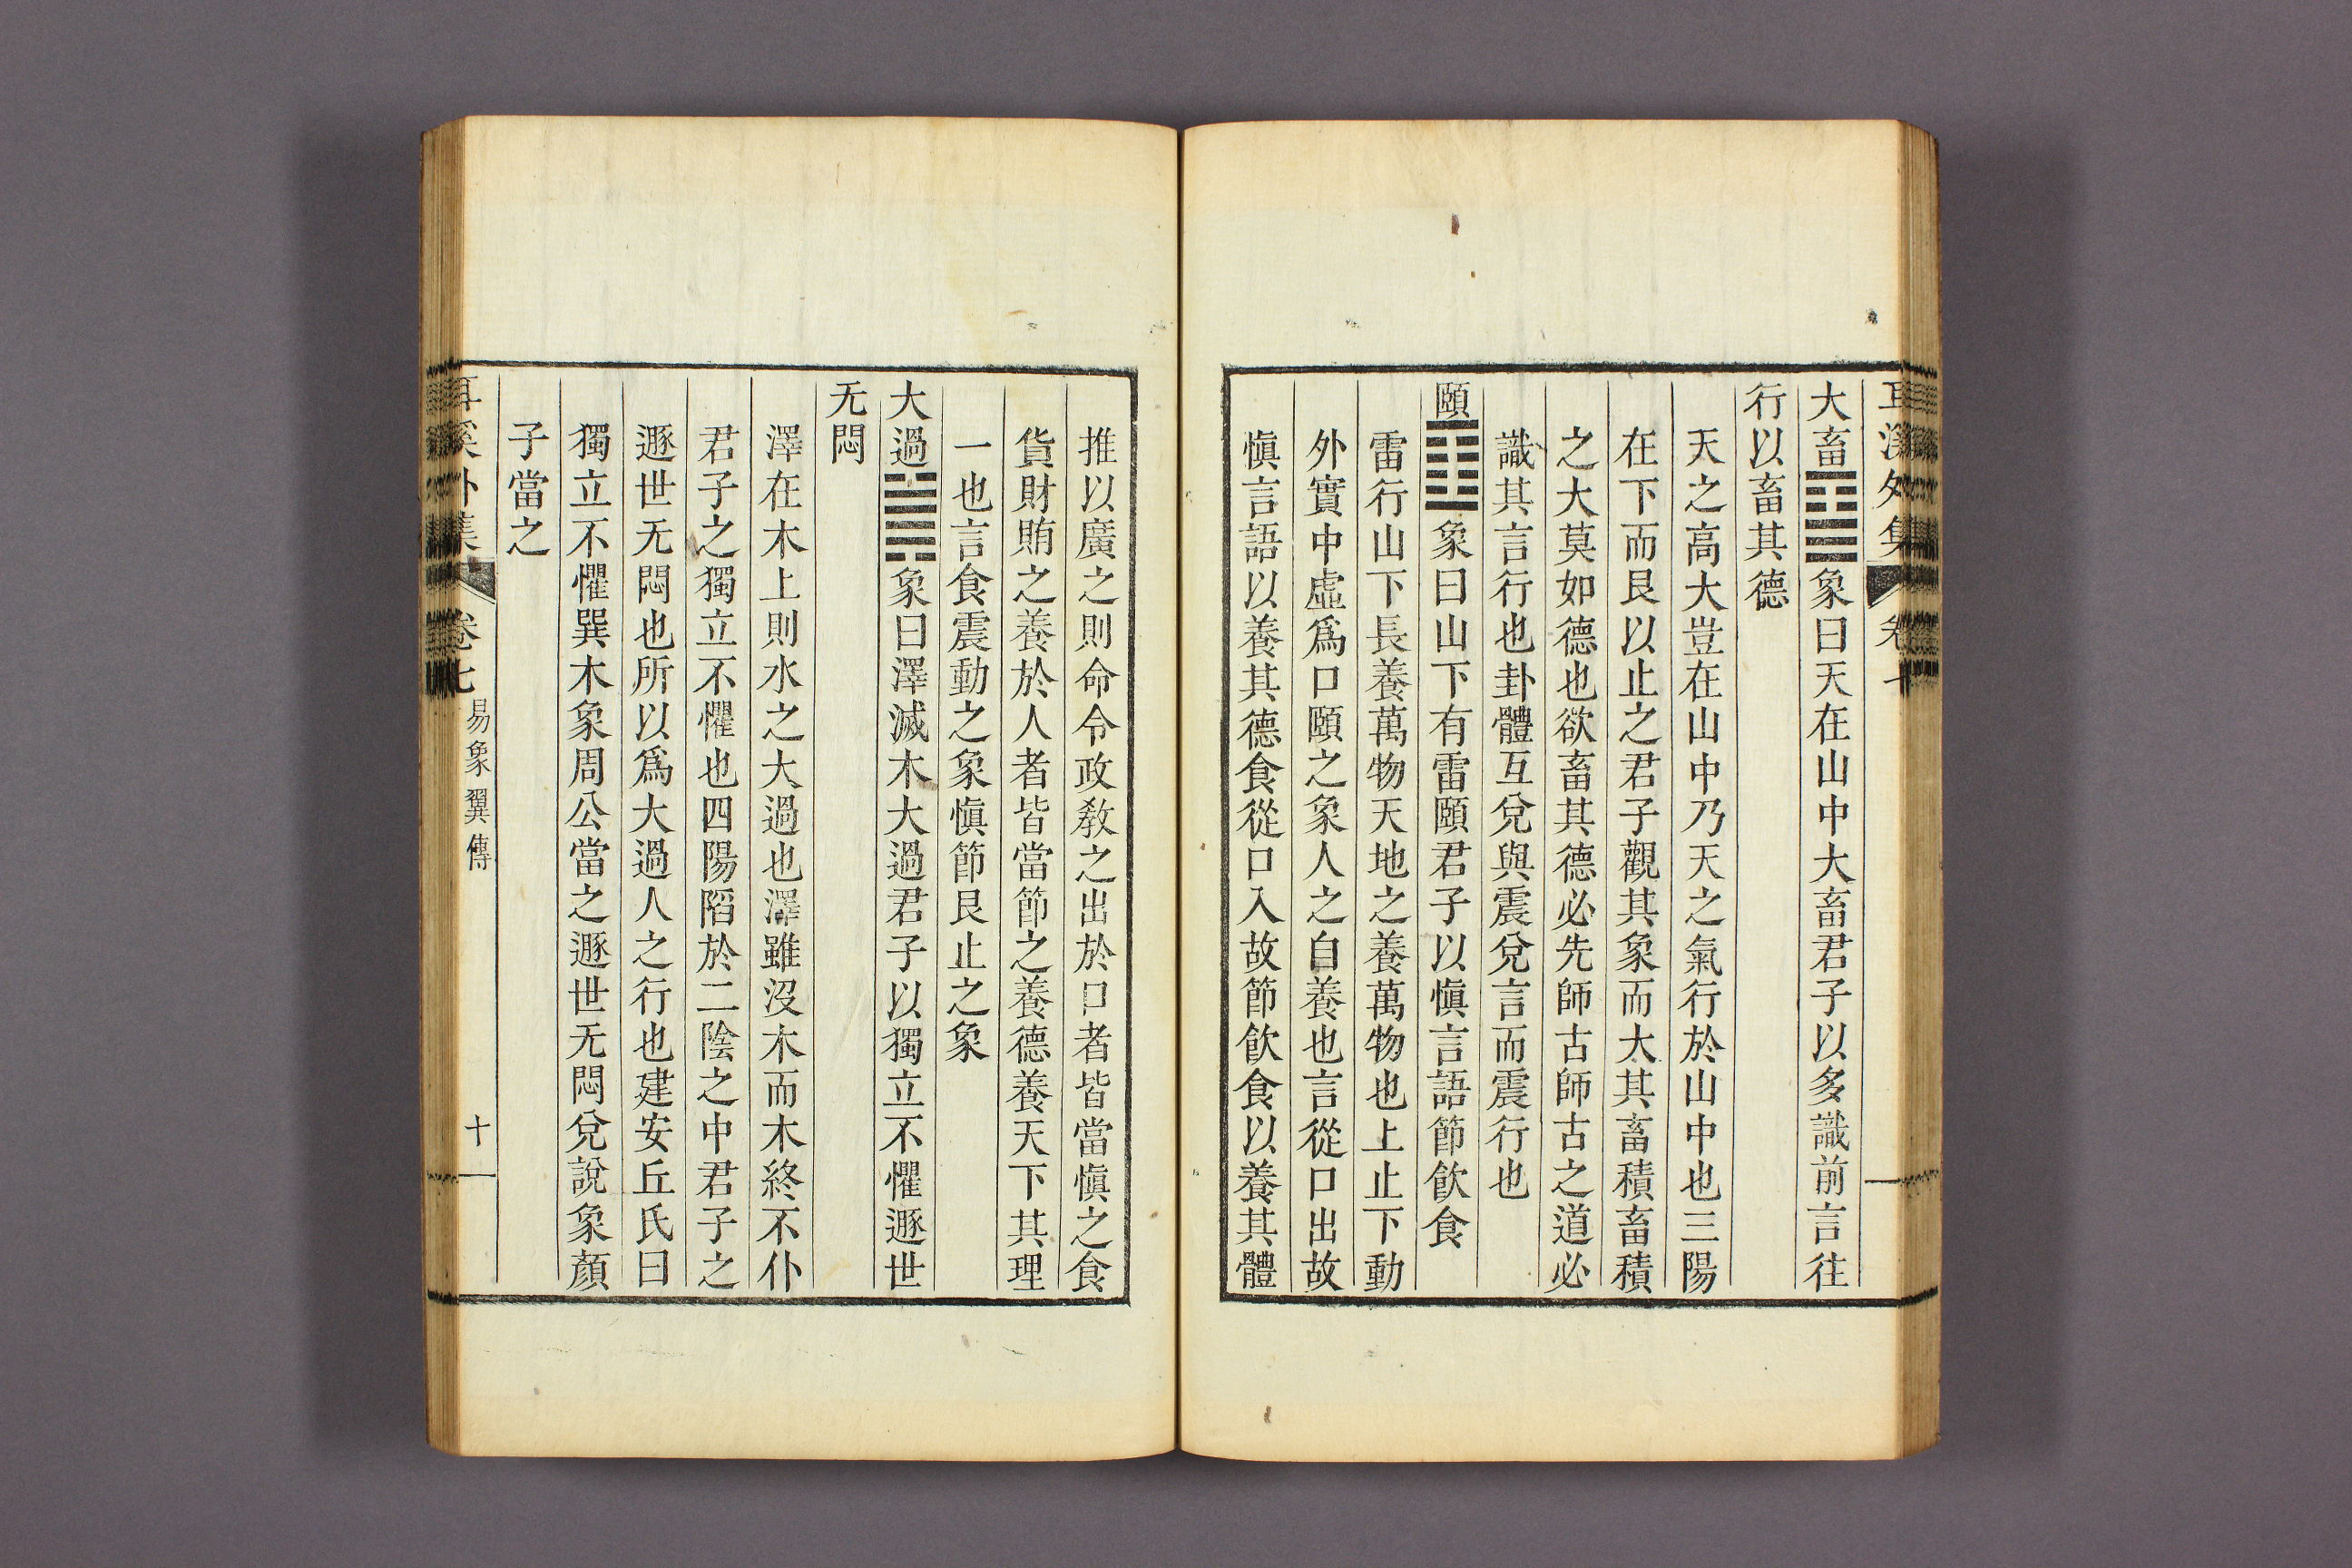 大畜䷙象曰天在山中大畜君子以多識前言往
行以畜其德
天之高大豈在山中乃天之氣行於山中也三陽
在下而艮以止之君子觀其象而大其畜積畜積
之大莫如德也欲畜其德必先師古師古之道必
識其言行也卦體互兌與震兌言而震行也
頤䷚象曰山下有雷頤君子以愼言語節飮食
雷行山下長養萬物天地之養萬物也上止下動
外實中虛爲口頤之象人之自養也言從口出故
愼言語以養其德食從口入故節飮食以養其體
推以廣之則命令政敎之出於口者皆當愼之食
貨財賄之養於人者皆當節之養德養天下其理
一也言食震動之象愼節艮止之象
大過䷛象曰澤滅木大過君子以獨立不懼遯世
无悶
澤在木上則水之大過也澤雖沒木而木終不仆
君子之獨立不懼也四陽陷於二陰之中君子之
遯世无悶也所以爲大過人之行也建安丘氏曰
獨立不懼巽木象周公當之遯世无悶兌說象顏
子當之
耳溪外集
卷七
易象翼傳
十